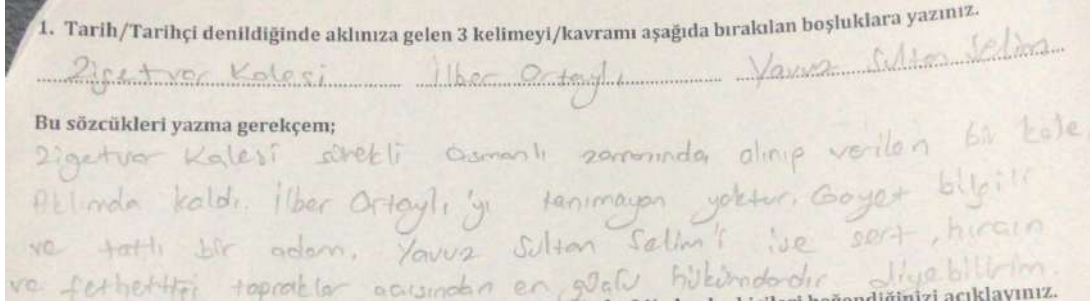 1. Tarih/Tarihçi denildiğinde aklınıza gelen 3 kelimeyi/kavramı aşağıda bırakılan boşluklara yazınız.
Zigetvar Kalesi İlber Ortaylı Yavuz Sultan Selim
Bu sözcükleri yazma gerekçem;
Zigetvar Kalesi sürekli Osmanlı zamanında alınıp verilen bir kale
Aklımda kaldı. İlber Ortaylı'yı tanımayan yoktur. Gayet bilgili
ve tatlı bir adam. Yavuz Sultan Selim'i ise sert, hırçın
ve fethettiği topraklar açısından en güçlü hükümdardır diyebilirim.
beğendiğinizi açıklayınız.